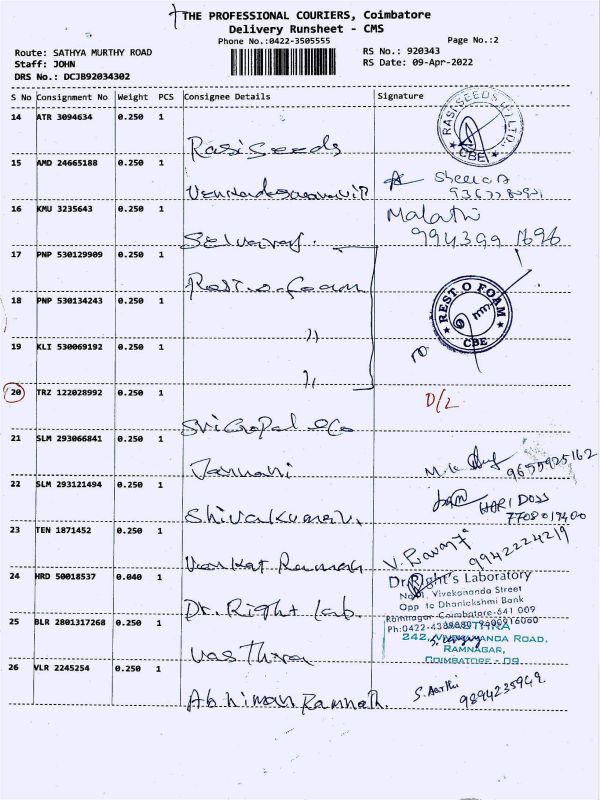 THE PROFESSIONAL COURIERS, Coimbatore
Delivery Runsheet - CMS
Phone No.:0422-3505555 Page No.:2
Route: SATHYA MURTHY ROAD RS No.: 920343
Staff: JOHN RS Date: 09-Apr-2022
DRS No.: DCJB92034302
S No Consignment No Weight PCS Consignee Details Signature
14 ATR 3094634 0.250 1
Rasi Seeds
RASI SEEDS (P) LTD. CBE
15 AMD 24665188 0.250 1
Sheela
16 KMU 3235643 0.250 1 Malathi
Selvaraj. 994399 1696
17 PNP 530129909 0.250 1
Rest-o-foam
18 PNP 530134243 0.250 1
REST O FOAM CBE
''
19 KLI 530069192 0.250 1
''
20 TRZ 122028992 0.250 1 D/L
Sri Gopal & Co
21 SLM 293066841 0.250 1
Janani 9655925162
22 SLM 293121494 0.250 1 HARI DOSS
Shivakumar.
23 TEN 1871452 0.250 1
Venkat Ramnah 9942224219
24 HRD 50018537 0.040 1 Dr.Right's Laboratory
Vivekananda Street
Opp to Dhanlakshmi Bank
Dr. Right Lab. Ramnagar Coimbatore-641 009
25 BLR 2801317268 0.250 1 Ph:0422-
242, VIVEKANANDA ROAD,
RAMNAGAR,
Vasthra COIMBATORE - 09
26 VLR 2245254 0.250 1 S. Aarthi
Abhiman Ramnath. 9894235949